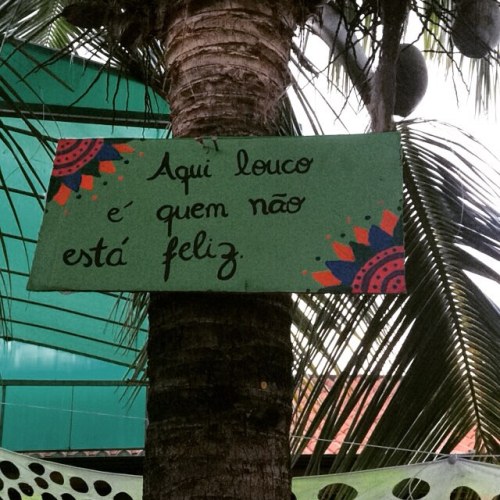 Aqui louco
é quem não
está feliz.